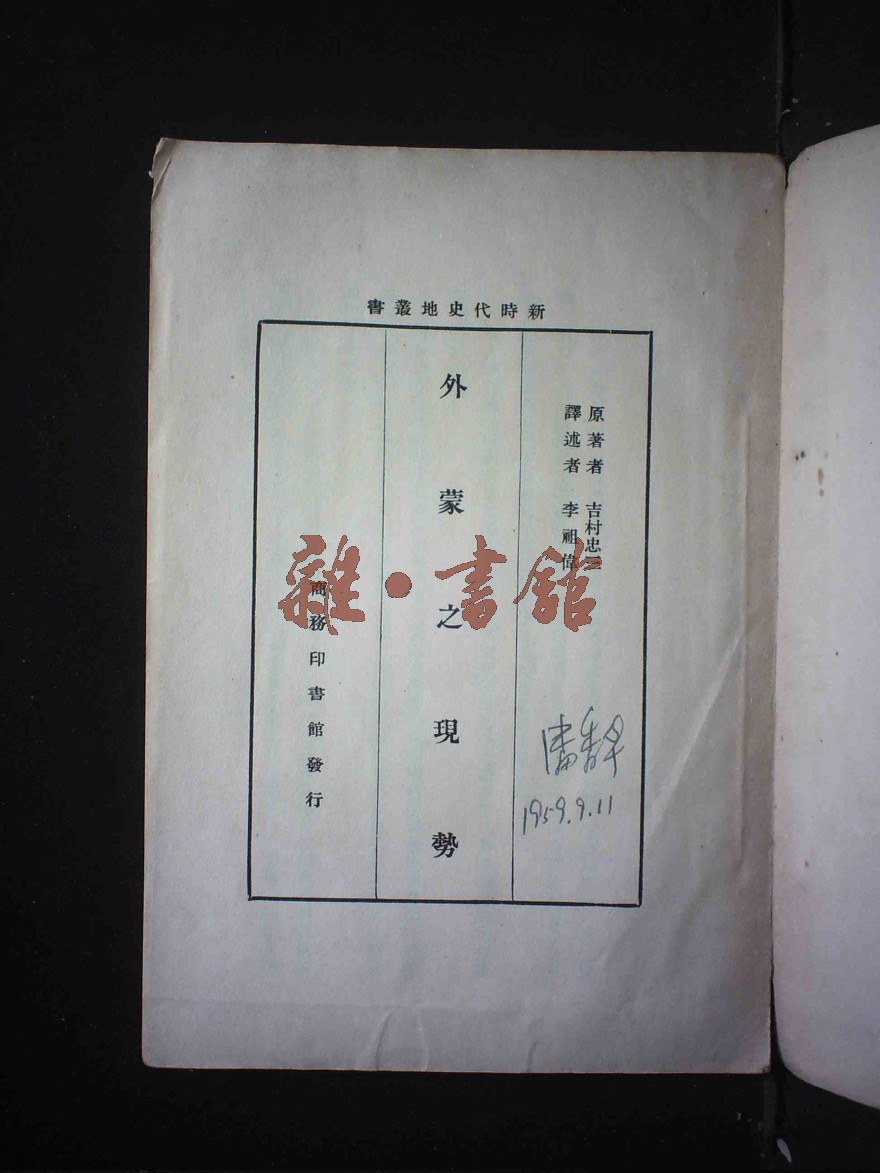 新時代史地叢書
原著者 吉村忠三
譯述者 李祖偉
外蒙之現勢
商務印書館發行
雜·書館
1959.9.11